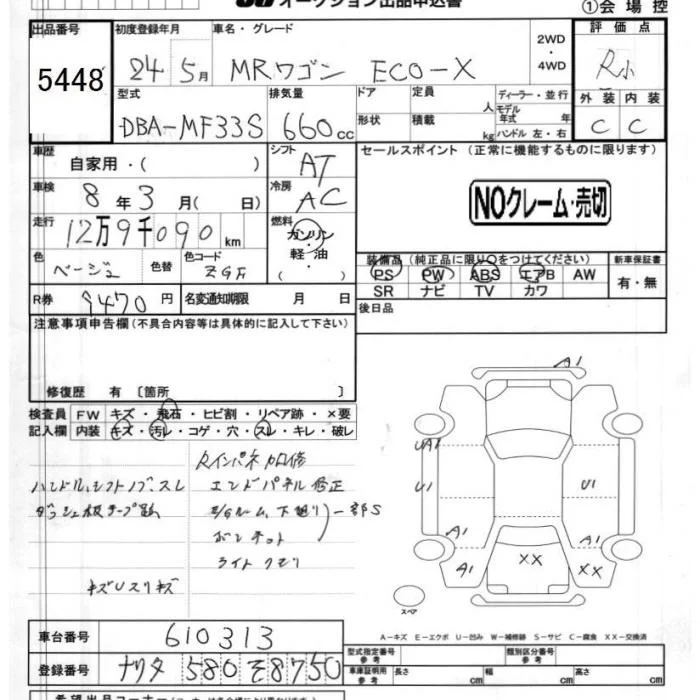 オークション出品申込書
①会場控
出品番号 初度登録年月 車名・グレード 2WD・4WD 評価点
5448 24年 5月 MRワゴン ECO-X R小
型式 排気量 ドア形状 定員 人 積載 kg ディーラー・並行 モデル年式 年 ハンドル 左・右 外装 内装
DBA-MF33S 660cc C C
車歴 自家用・( ) シフト AT セールスポイント (正常に機能するものに限ります)
車検 8年3月( 日) 冷房 AC
NOクレーム・売切
走行 12万9千090km 燃料 ガソリン・軽油・( )
色 ベージュ 色替 色コード ZGF
装備品 (純正品に限り○をつけてください) 新車保証書
PS PW ABS エアB AW 有・無
SR ナビ TV カワ
R券 9470円 名変通知期限 月 日 後日品
注意事項申告欄 (不具合内容等は具体的に記入して下さい)
修復歴 有 〔箇所 〕
検査員 FW キズ・飛石・ヒビ割・リペア跡・×要
記入欄 内装 キズ・汚レ・コゲ・穴・スレ・キレ・破レ
ハンドル、シフトノブ、スレ
ダッシュ板テープ跡
キズUスリキズ
Rインパネ加修
エンドパネル修正
E/Gルーム、下廻リ 一部S
ボンネット
ライトクモリ
A1
UA1
U1 U1
A1 A1
A1 XX XX
スペア
A-キズ E-エクボ U-凹み W-補修跡 S-サビ C-腐食 XX-交換済
車台番号 610313
登録番号 ナリタ 580 そ 8750
型式指定番号 参考 類別区分番号 参考
車庫証明用 参考 長さ cm 幅 cm 高さ cm
希望出品コーナー